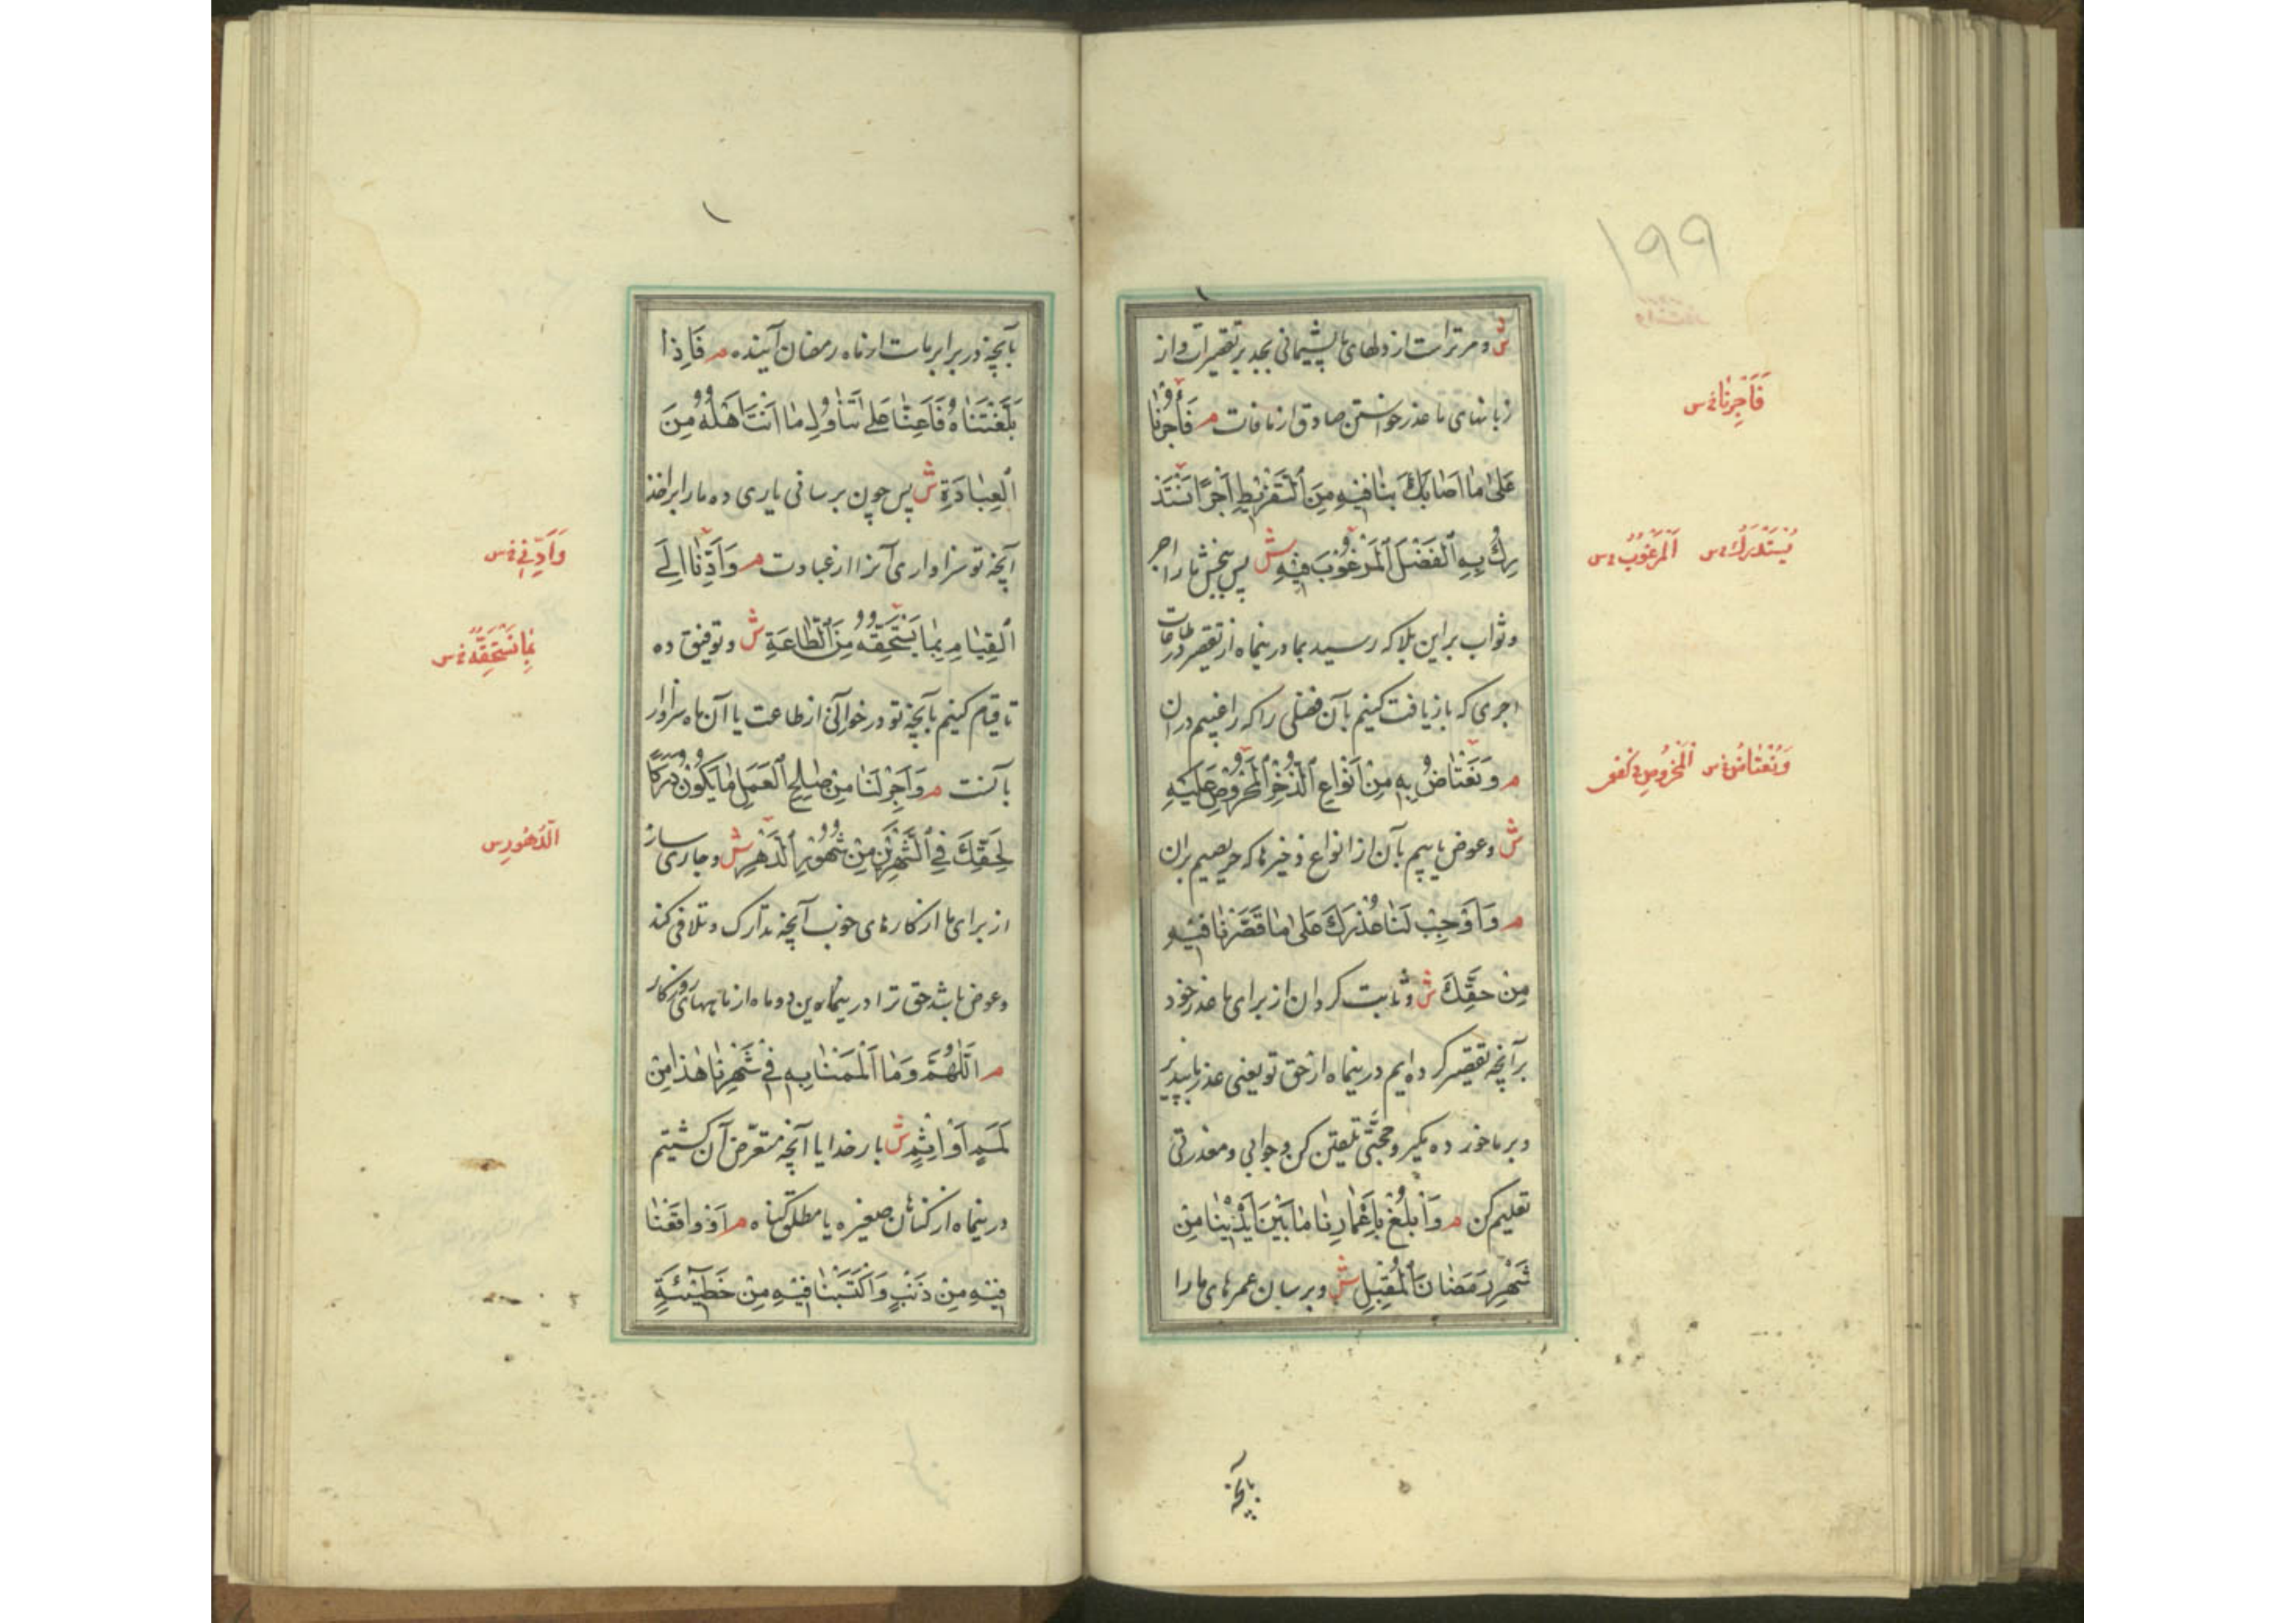 ١٩٩
ش و مر تراست از دلهای ما پشیمانی بجد بر تقصیرات و از
زبانهای ما عذر خواستن صادق از مافات م فَأْجُرْنَا
عَلَىٰ مَا أَصَابَكَ بِنَا فِيهِ مِنَ ٱلتَّفْرِيطِ أَجْرًا نَسْتَدْ
رِكُ بِهِ ٱلْفَضْلَ ٱلْمَرْغُوبَ فِيهِ ش پس ببخش ما را اجر
و ثواب بر این بلا که رسید بما درینماه از تقصیر در طاعات
اجری که باز یافت کنیم بآن فضلی را که راغبیم در ان
م وَنَعْتَاضُ بِهِ مِنْ أَنْوَاعِ ٱلذُّخْرِ ٱلْمَحْرُوصِ عَلَيْهِ
ش و عوض یابیم بآن از انواع ذخیرها که حریصیم بران
م وَأَوْجِبْ لَنَا عُذْرَكَ عَلَىٰ مَا قَصَّرْنَا فِيهِ
مِنْ حَقِّكَ ش و ثابت گردان از برای ما عذر خود
بر آنچه تقصیر کرده ایم درینماه از حق تو یعنی عذر ما بپذیر
و بر ما خورده مگیر و حجتی تلقین کن و جوابی و معذرتی
تعلیم کن م وَٱبْلُغْ بِأَعْمَارِنَا مَا بَيْنَ أَيْدِينَا مِنْ
شَهْرِ رَمَضَانَ ٱلْمُقْبِلِ ش و برسان عمرهای ما را
بآنچه
فَآجِرْنَا خ س
نَسْتَدْرِكُ س ٱلْمَرْغُوبَ س
وَنَعْتَاضُ س ٱلْمَحْرُوصِ كفع
بآنچه در برابر ماست از ماه رمضان آینده م فَإِذَا
بَلَّغْتَنَاهُ فَأَعِنَّا عَلَىٰ تَنَاوُلِ مَا أَنْتَ أَهْلُهُ مِنَ
ٱلْعِبَادَةِ ش پس چون برسانی یاری ده ما را بر اخذ
آنچه تو سزاواری آنرا از عبادت م وَأَدِّنَا إِلَى
ٱلْقِيَامِ بِمَا يَسْتَحِقُّهُ مِنَ ٱلطَّاعَةِ ش و توفیق ده
تا قیام کنیم بآنچه تو در خور آنی از طاعت یا آن ماه سزاوار
بآنست م وَأَجْرِ لَنَا مِنْ صَالِحِ ٱلْعَمَلِ مَا يَكُونُ دَرَكًا
لِحَقِّكَ فِي ٱلشَّهْرَيْنِ مِنْ شُهُورِ ٱلدَّهْرِ ش و جاری ساز
از برای ما از کارهای خوب آنچه تدارک و تلافی کند
و عوض باشد حق ترا در این دو ماه از ماههای روزگار
م ٱللَّهُمَّ وَمَا أَلْمَمْنَا بِهِ فِي شَهْرِنَا هٰذَا مِنْ
لَمَمٍ أَوْ إِثْمٍ ش بار خدایا آنچه متعرض آن گشتیم
درینماه از گناهان صغیره یا مطلق گناه م أَوْ وَاقَعْنَا
فِيهِ مِنْ ذَنْبٍ وَٱكْتَسَبْنَا فِيهِ مِنْ خَطِيئَةٍ
وَأَدِّنِي خ س
بِمَا نَسْتَحِقُّهُ خ س
ٱلدُّهُورِ س